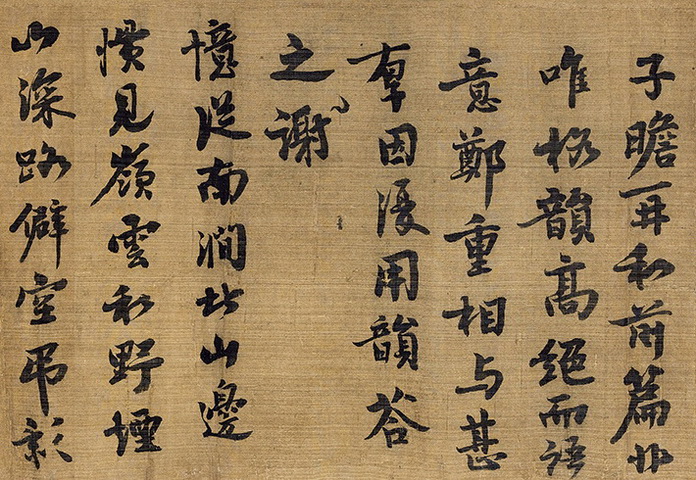 子瞻再和前篇非
唯格韻高絕而語
意鄭重相與甚
厚因復用韻答
之謝
憶從南澗北山邊
慣見嶺雲和野煙
山深路僻空弔影